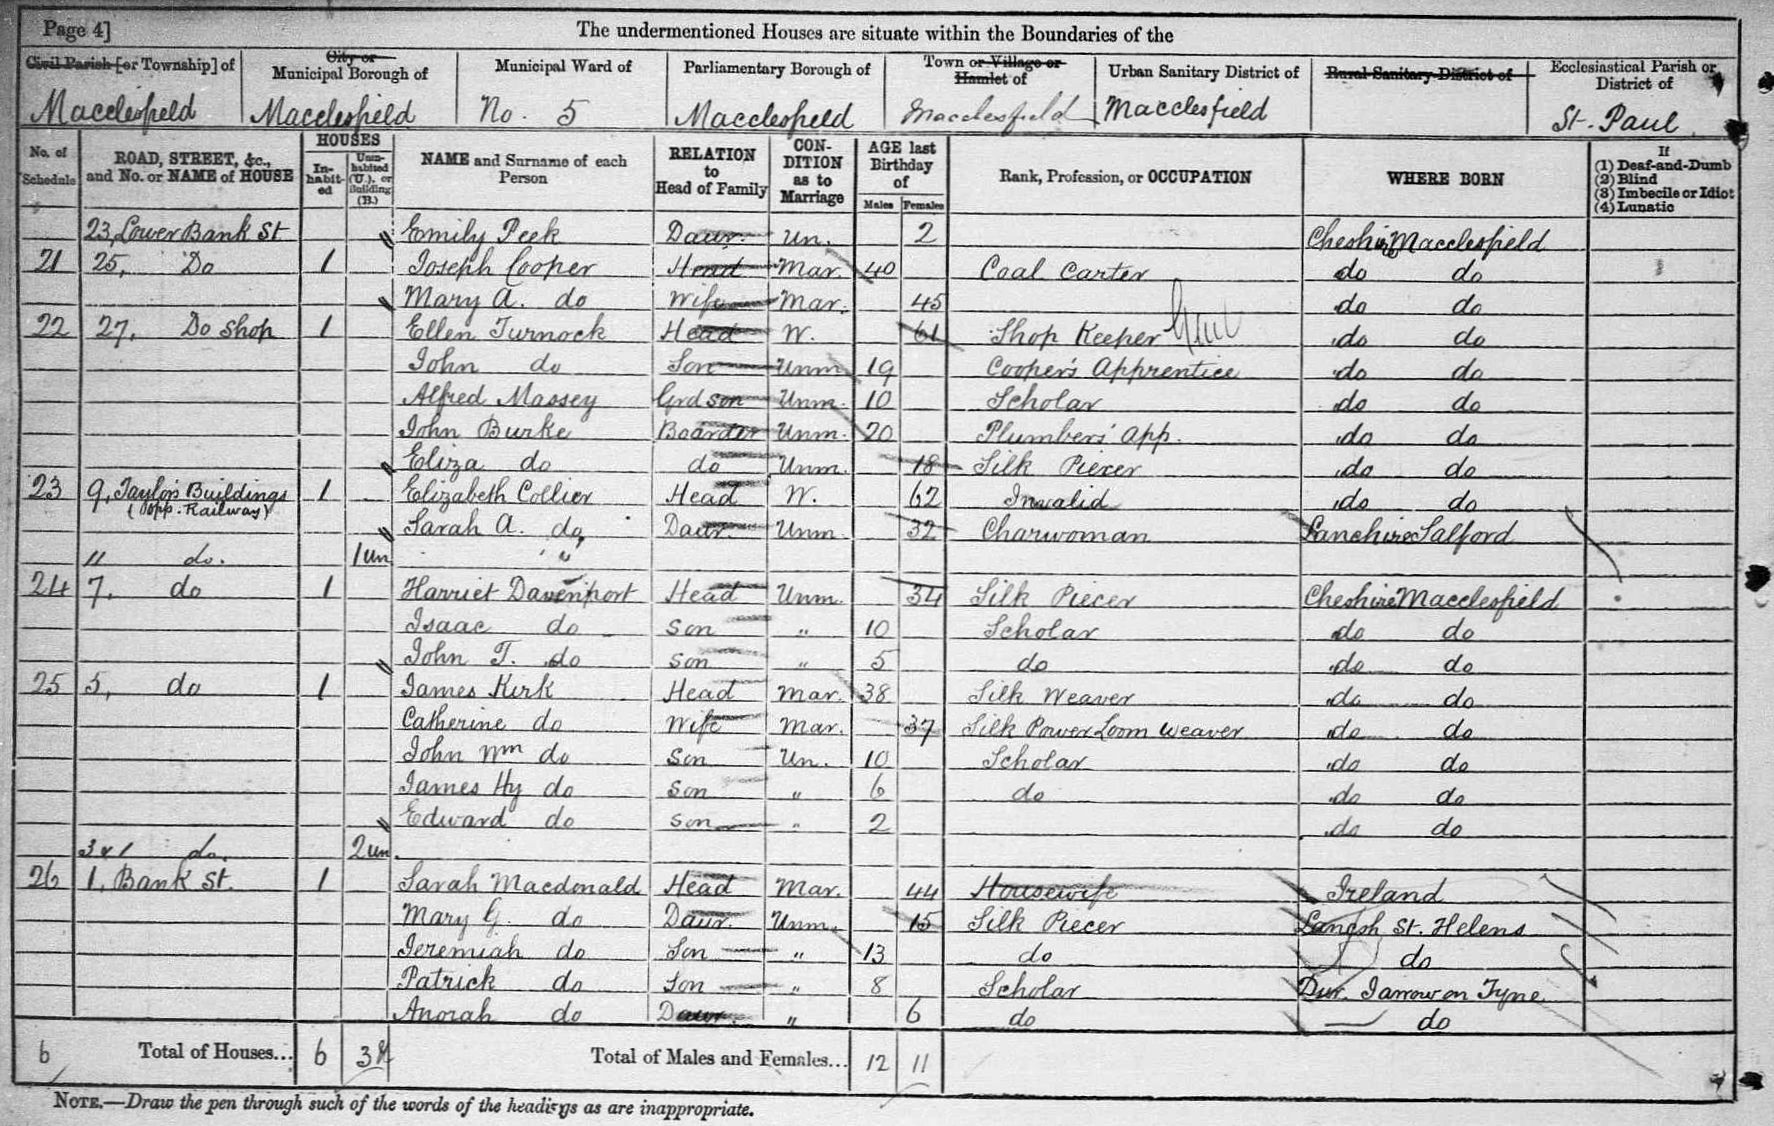 Page 4]
The undermentioned Houses are situate within the Boundaries of the
Civil Parish [or Township] of
City or Municipal Borough of
Municipal Ward of
Parliamentary Borough of
Town or Village or Hamlet of
Urban Sanitary District of
Rural Sanitary District of
Ecclesiastical Parish or District of
Macclesfield Macclesfield No. 5 Macclesfield Macclesfield Macclesfield St. Paul
No. of Schedule
ROAD, STREET, &c., and No. or NAME of HOUSE
HOUSES
In-habit-ed
Unin-habited (U.), or Building (B.)
NAME and Surname of each Person
RELATION to Head of Family
CON-DITION as to Marriage
AGE last Birthday of
Males Females
Rank, Profession, or OCCUPATION
WHERE BORN
If
(1) Deaf-and-Dumb
(2) Blind
(3) Imbecile or Idiot
(4) Lunatic
23, Lower Bank St Emily Peek Daur. Un. 2 Cheshire Macclesfield
21 25, Do 1 Joseph Cooper Head Mar. 40 Coal Carter do do
Mary A. do Wife Mar. 45 do do
22 27, Do Shop 1 Ellen Turnock Head W. 61 Shop Keeper do do
John do Son Unm 19 Cooper's Apprentice do do
Alfred Massey Grdson Unm. 10 Scholar do do
John Burke Boarder Unm. 20 Plumbers' App. do do
Eliza do do Unm. 18 Silk Piecer do do
23 9, Taylor's Buildings 1 Elizabeth Collier Head W. 62 Invalid do do
(opp. Railway)
Sarah A. do Daur. Unm 32 Charwoman Lanchire Salford
" do. 1 un "
24 7, do 1 Harriet Davenport Head Unm. 34 Silk Piecer Cheshire Macclesfield
Isaac do Son " 10 Scholar do do
John T. do Son " 5 do do do
25 5, do 1 James Kirk Head Mar. 38 Silk Weaver do do
Catherine do Wife Mar. 37 Silk Power Loom Weaver do do
John Wm do Son Un. 10 Scholar do do
James Hy do Son " 6 do do do
Edward do Son " 2 do do
3 & 1 do. 2 un.
26 1, Bank St. 1 Sarah Macdonald Head Mar. 44 Housewife Ireland
Mary G. do Daur. Unm. 15 Silk Piecer Lancsh St. Helens
Jeremiah do Son " 13 do do
Patrick do Son " 8 Scholar Dur. Jarrow on Tyne
Anorah do Daur. " 6 do do
6 Total of Houses... 6 3 Total of Males and Females... 12 11
NOTE.—Draw the pen through such of the words of the headings as are inappropriate.